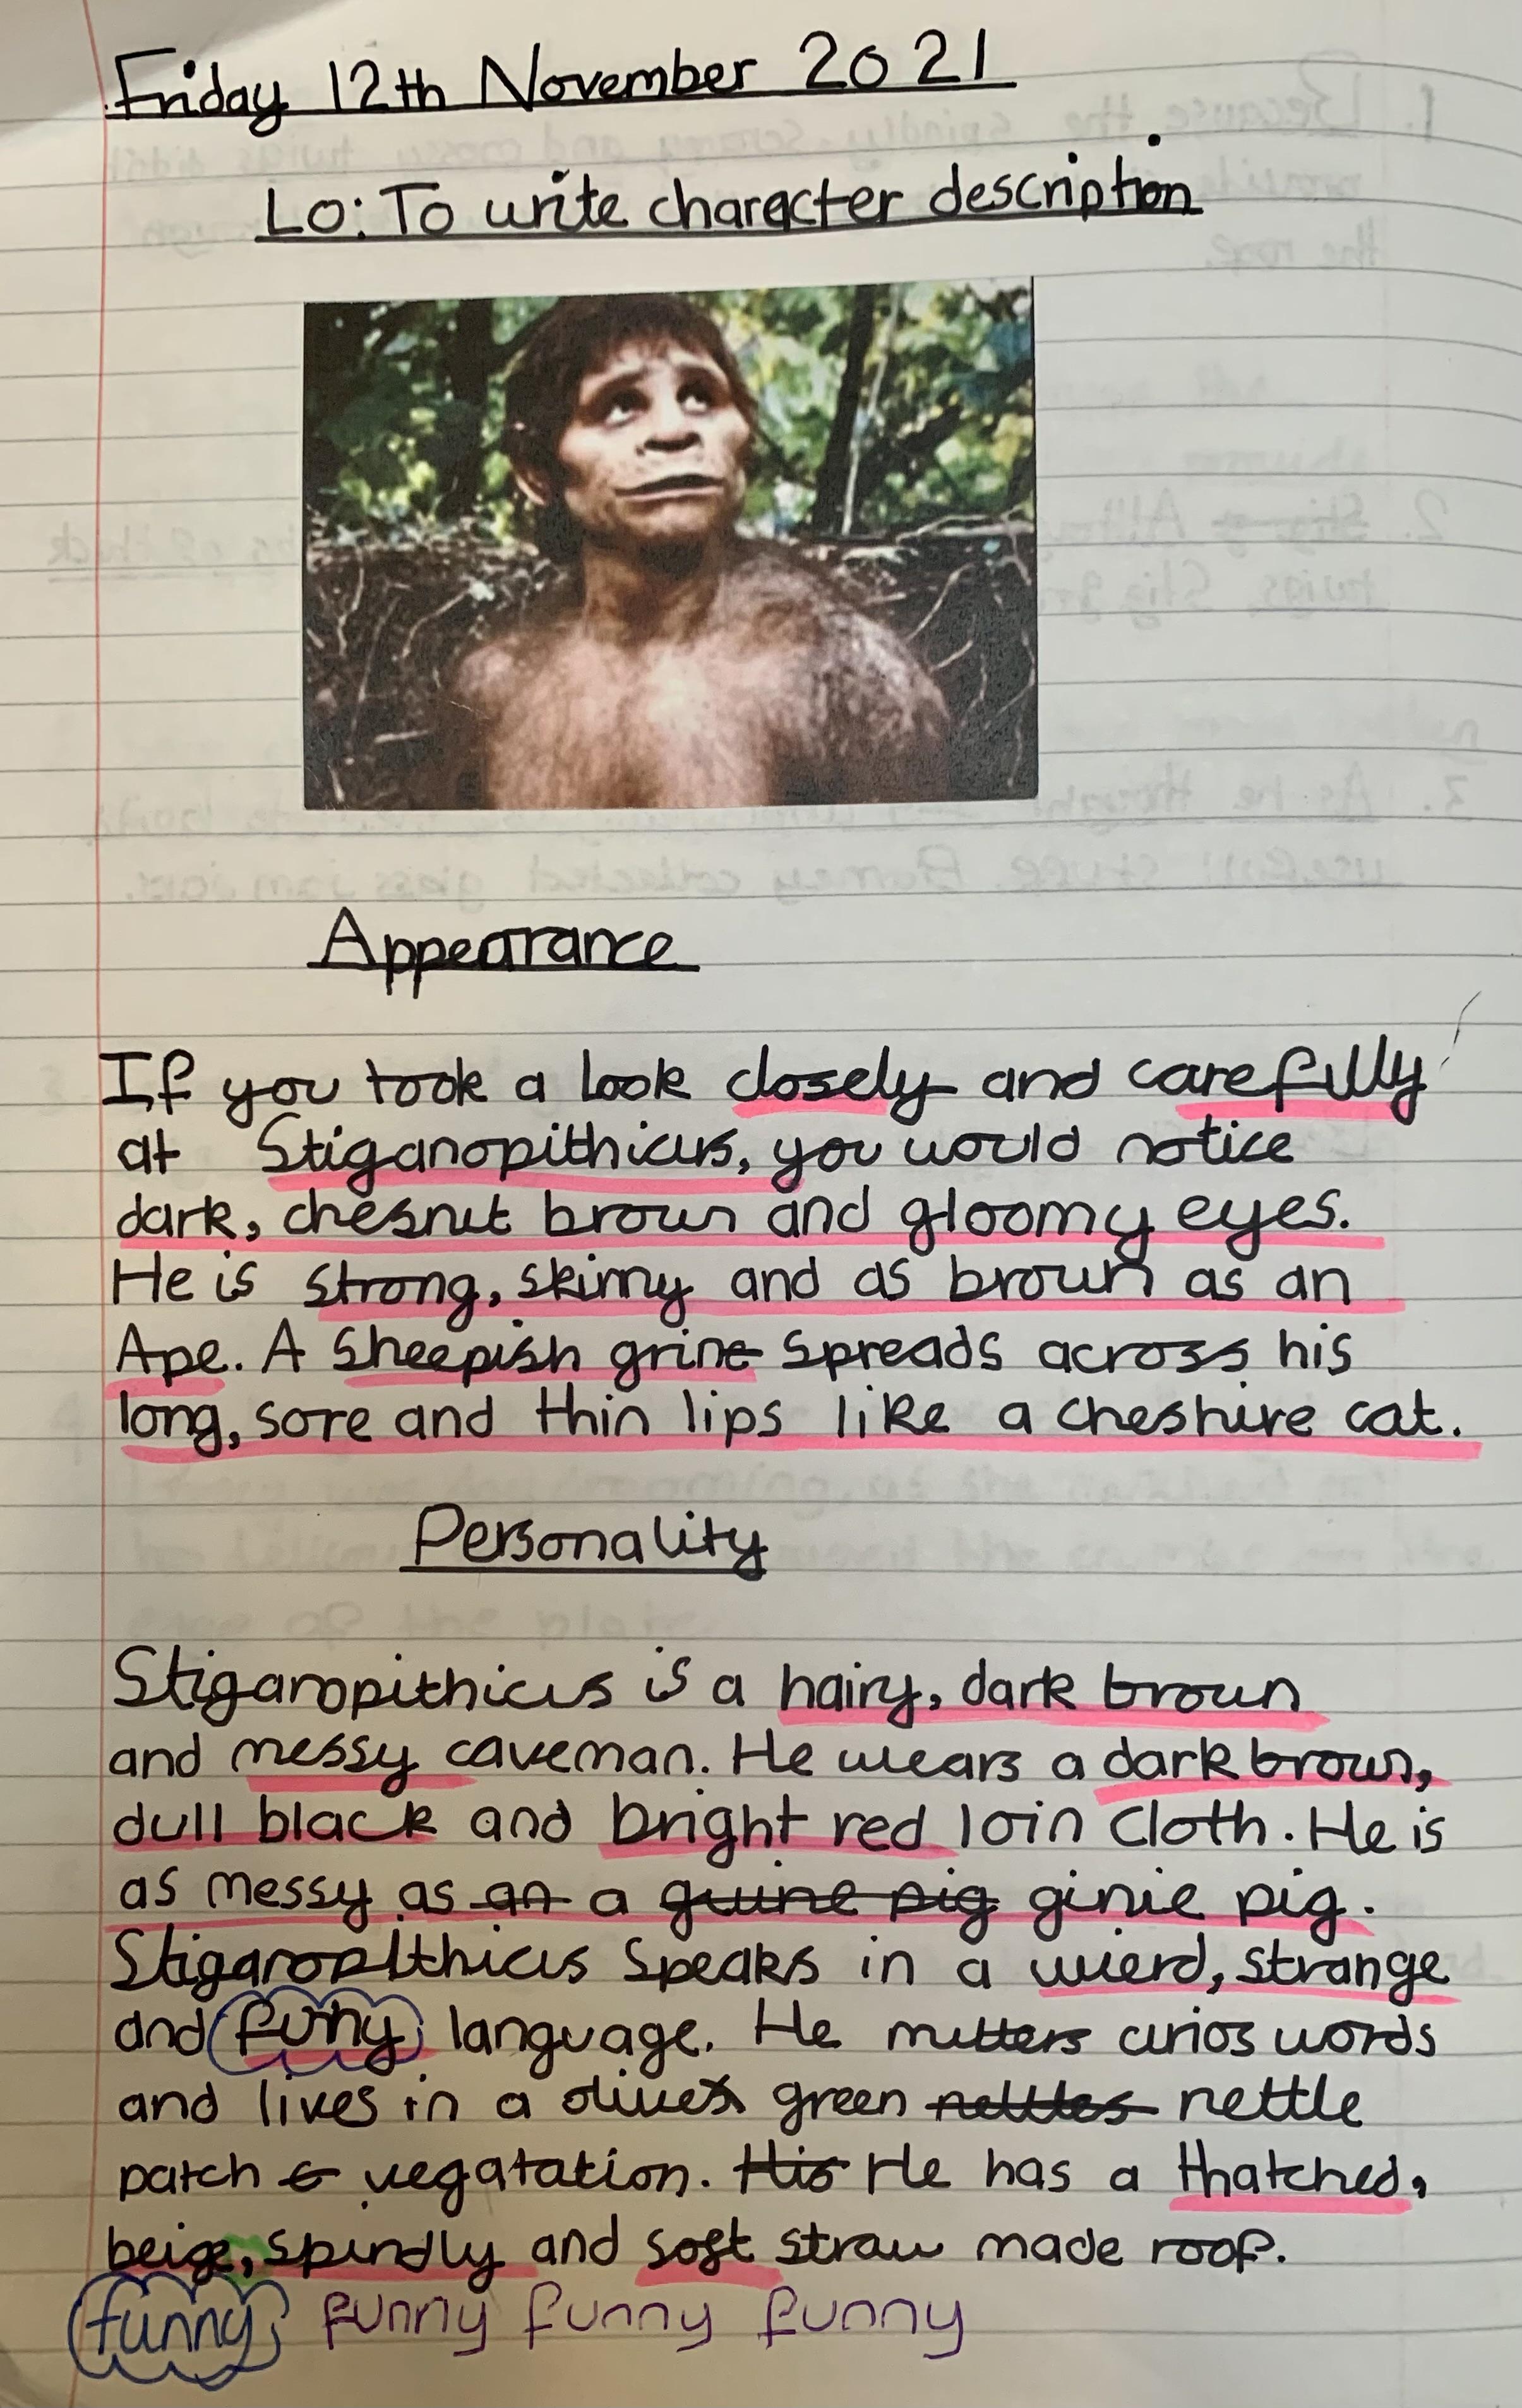 Friday 12th November 2021
LO: To write character description
Appearance
If you took a look closely and carefully
at Stiganopithicus, you would notice
dark, chesnut brown and gloomy eyes.
He is strong, skinny and as brown as an
Ape. A sheepish grine spreads across his
long, sore and thin lips like a cheshire cat.
Personality
Stiganopithicus is a hairy, dark brown
and messy caveman. He wears a dark brown,
dull black and bright red loin cloth. He is
as messy as an a guine pig ginie pig.
Stiganopithicus speaks in a wierd, strange
and funy language. He mutters curios words
and lives in a olives green nettles nettle
patch vegatation. His He has a thatched,
beige, spindly and soft straw made roof.
funny funny funny funny